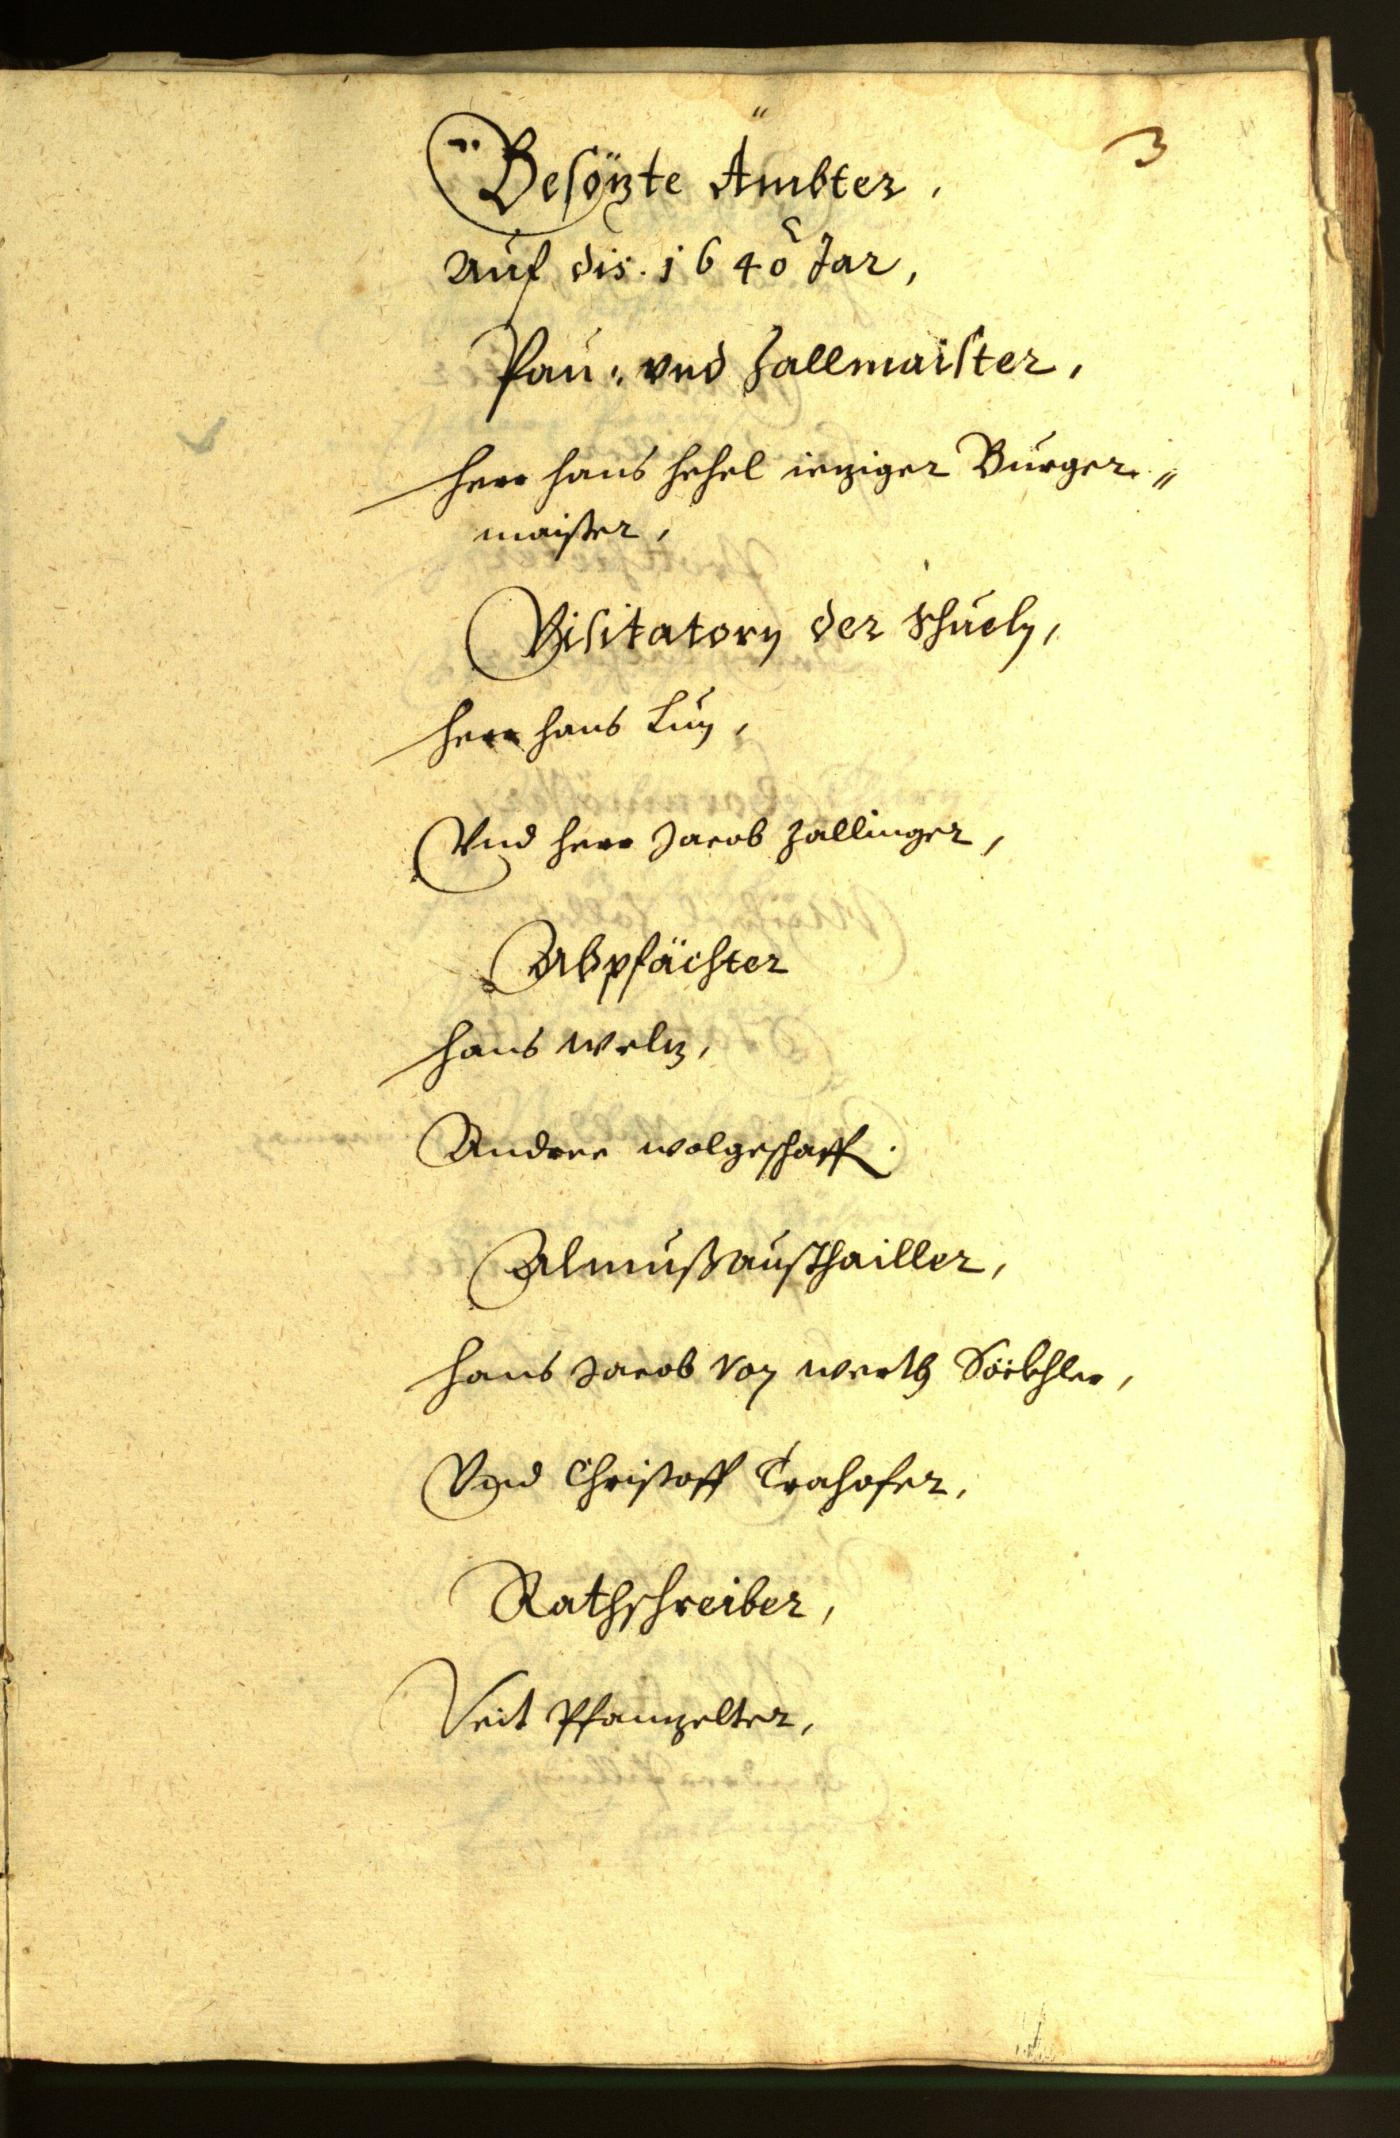 3
Besözte Ämbter,
Auf dis. 1640 Jar,
Pau: vnd Zallmaister,
Herr Hans Hehel ieziger Burger„
maister,
Visitatorn der Schueln,
Herr Hans Luz,
Vnd Herr Jacob Zallinger,
Abpfächter
Hans Welz,
Andree Wolgeschaff.
Almußausthailler,
Hans Jacob Von Werth
Vnd Christoff Trahofer,
Rathschreiber,
Veit Pfanzelter,